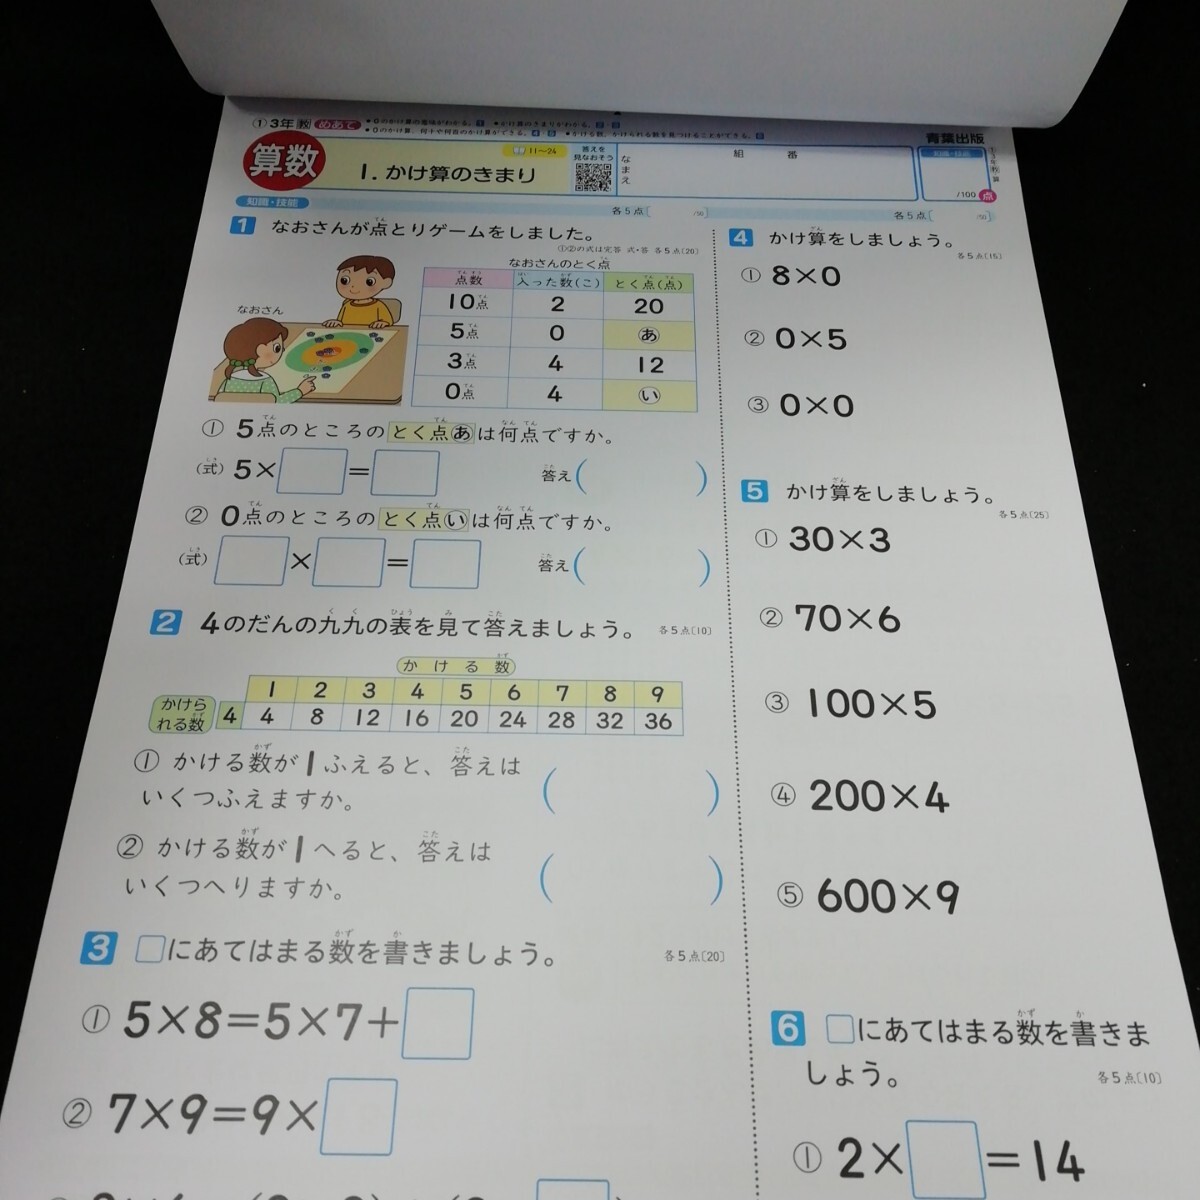 ①3年 教 めあて ●0のかけ算の意味がわかる。1 ●かけ算のきまりがわかる。2 3
●0のかけ算、何十や何百のかけ算ができる。4 5 ●かける数、かけられる数を見つけることができる。6
青葉出版
算数
1. かけ算のきまり
11〜24
答えを
見なおそう
なまえ
組 番
知識・技能
/100 点
知識・技能
各5点〔 /50〕
各5点〔 /50〕
1 なおさんが点とりゲームをしました。
てん
①②の式は完答 式・答 各5点〔20〕
なおさん
なおさんのとく点
点数 入った数(こ) とく点(点)
10点 2 20
5点 0 あ
3点 4 12
0点 4 い
① 5点のところの とく点あ は何点ですか。
(式) 5×□=□ 答え( )
② 0点のところの とく点い は何点ですか。
(式) □×□=□ 答え( )
2 4のだんの九九の表を見て答えましょう。 各5点〔10〕
かける数
1 2 3 4 5 6 7 8 9
かけら
れる数
4 4 8 12 16 20 24 28 32 36
① かける数が1ふえると、答えは
いくつふえますか。 ( )
② かける数が1へると、答えは
いくつへりますか。 ( )
3 □にあてはまる数を書きましょう。 各5点〔20〕
① 5×8=5×7+□
② 7×9=9×□
4 かけ算をしましょう。
各5点〔15〕
① 8×0
② 0×5
③ 0×0
5 かけ算をしましょう。
各5点〔25〕
① 30×3
② 70×6
③ 100×5
④ 200×4
⑤ 600×9
6 □にあてはまる数を書きま
しょう。 各5点〔10〕
① 2×□=14